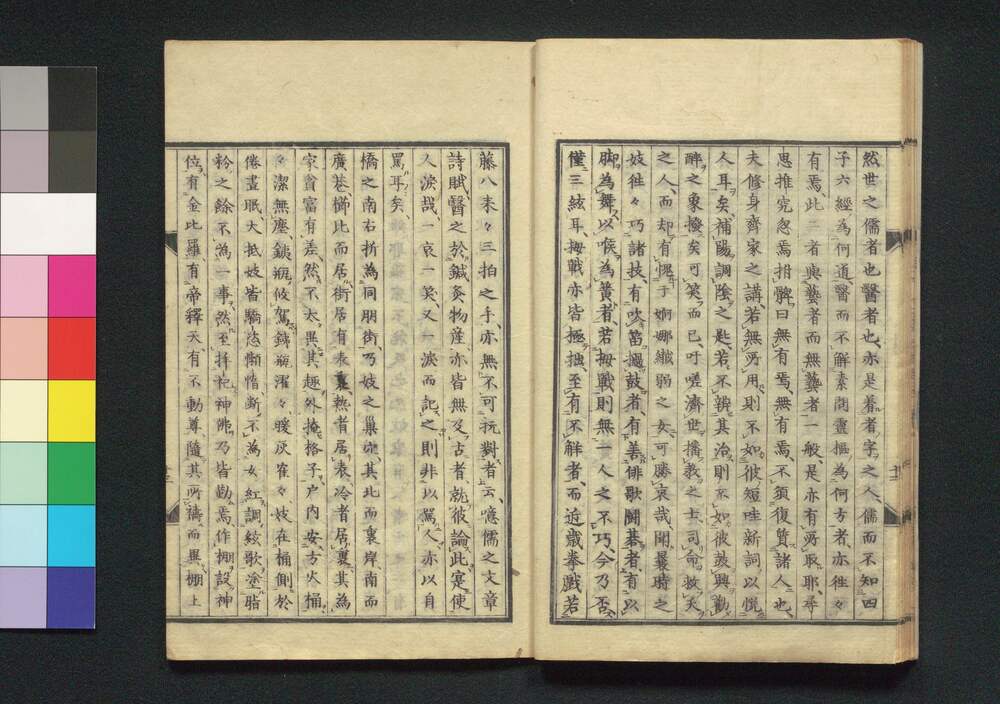 然世之儒者也醫者也亦是着者字之人儒而不知四
子六經為何道醫而不解素問靈樞為何方者亦徃々
有焉此二者與藝者而無藝者一般是亦有所取耶尋
思推究忽焉拊髀曰無有焉無有焉不須復質諸人也
夫修身齊家之講若無所用則不如彼短哇新詞以悅
人耳矣補陽調陰之匙若不辨其治則不如彼鼓興勸
醉之象撥矣可笑而已吁嗟濟世播教之士司命救夭
之人而却有愧于婀娜纖弱之女可勝哀哉聞曩時之
妓徃々巧諸技有吹笛擫鼓者有善俳歌鬪碁者有以
脚為舞以喉為簧者若拇戰則無一人之不巧今乃否
僅三絃耳拇戰亦皆極拙至有不解者而近歲拳戲若
藤八未々三拍之手亦無不可抏對者云噫儒之文章
詩賦醫之於鍼灸物産亦皆無及古者就彼論此寔使
人淚哉一哀一笑又一淚而記之則非以罵人亦以自
罵耳矣
橋之南右折為同朋街乃妓之巢窟其北而裏岸南而
廣巷櫛比而居街居有表裏熱者居表冷者居裏其為
家貧富有差然不大異其趣外掩格子戶內安方火桶
々潔無塵銕瓶攸駕銕瓶濯々暖灰寉々妓在桶側於
倦晝眠大抵妓皆驕慈懶惰斷不為女紅調絃歌塗脂
粉之餘不為一事然至拜祀神佛乃皆勤焉作棚設神
位有金比羅有帝釋天有不動尊隨其所禱而異棚上